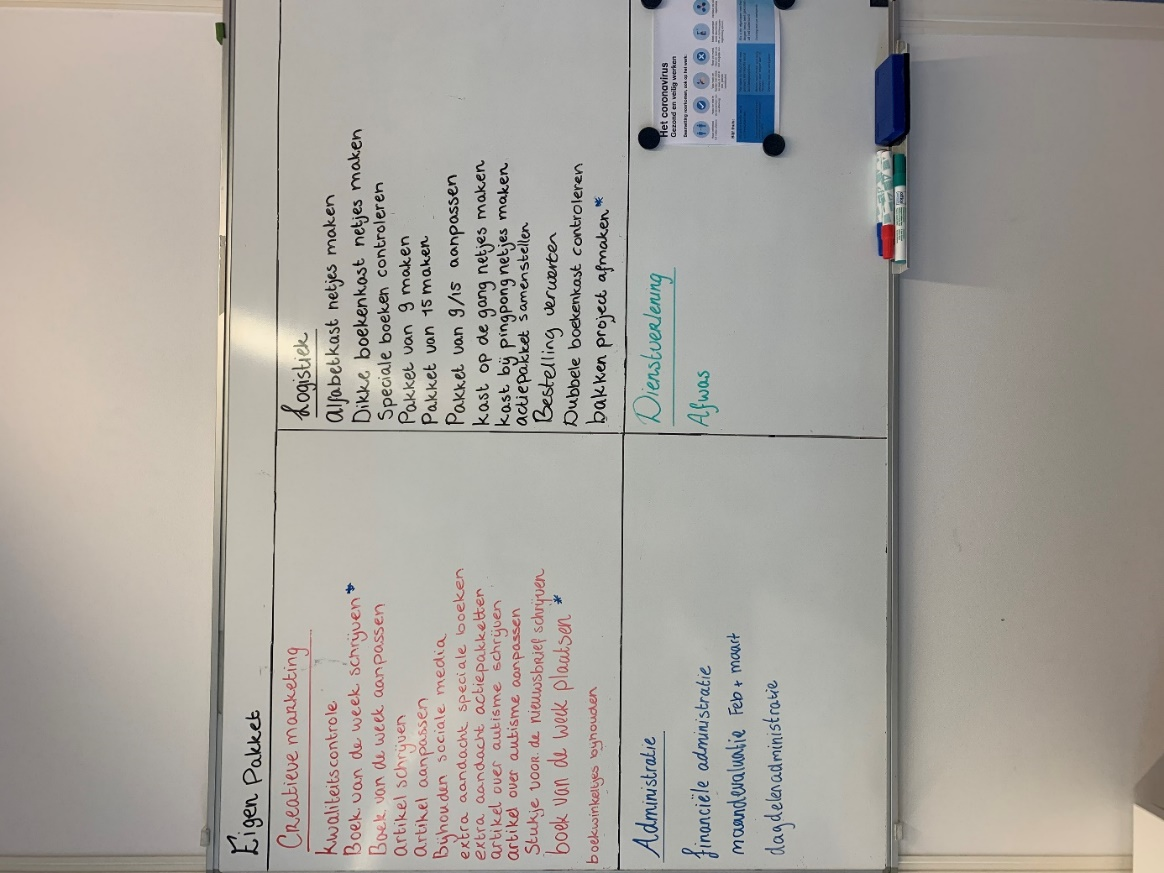 Eigen Pakket
Creatieve marketing
kwaliteitscontrole
Boek van de week schrijven *
Boek van de week aanpassen
Artikel schrijven
Artikel aanpassen
Bijhouden sociale media
extra aandacht speciale boeken
extra aandacht actiepakketten
artikel over autisme schrijven
artikel over autisme aanpassen
Stukje voor de nieuwsbrief schrijven
boek van de week plaatsen *
boekwinkeltjes bijhouden
Logistiek
Alfabetkast netjes maken
Dikke boekenkast netjes maken
Speciale boeken controleren
Pakket van 9 maken
Pakket van 15 maken
Pakket van 9/15 aanpassen
kast op de gang netjes maken
kast bij pingpong netjes maken
actiepakket samenstellen
Bestelling verwerken
Dubbele boekenkast controleren
bakken project afmaken *
Administratie
financiële administratie
maandevaluatie Feb + maart
dagdelenadministratie
Dienstverlening
Afwas
Het coronavirus
Gezond en veilig werken